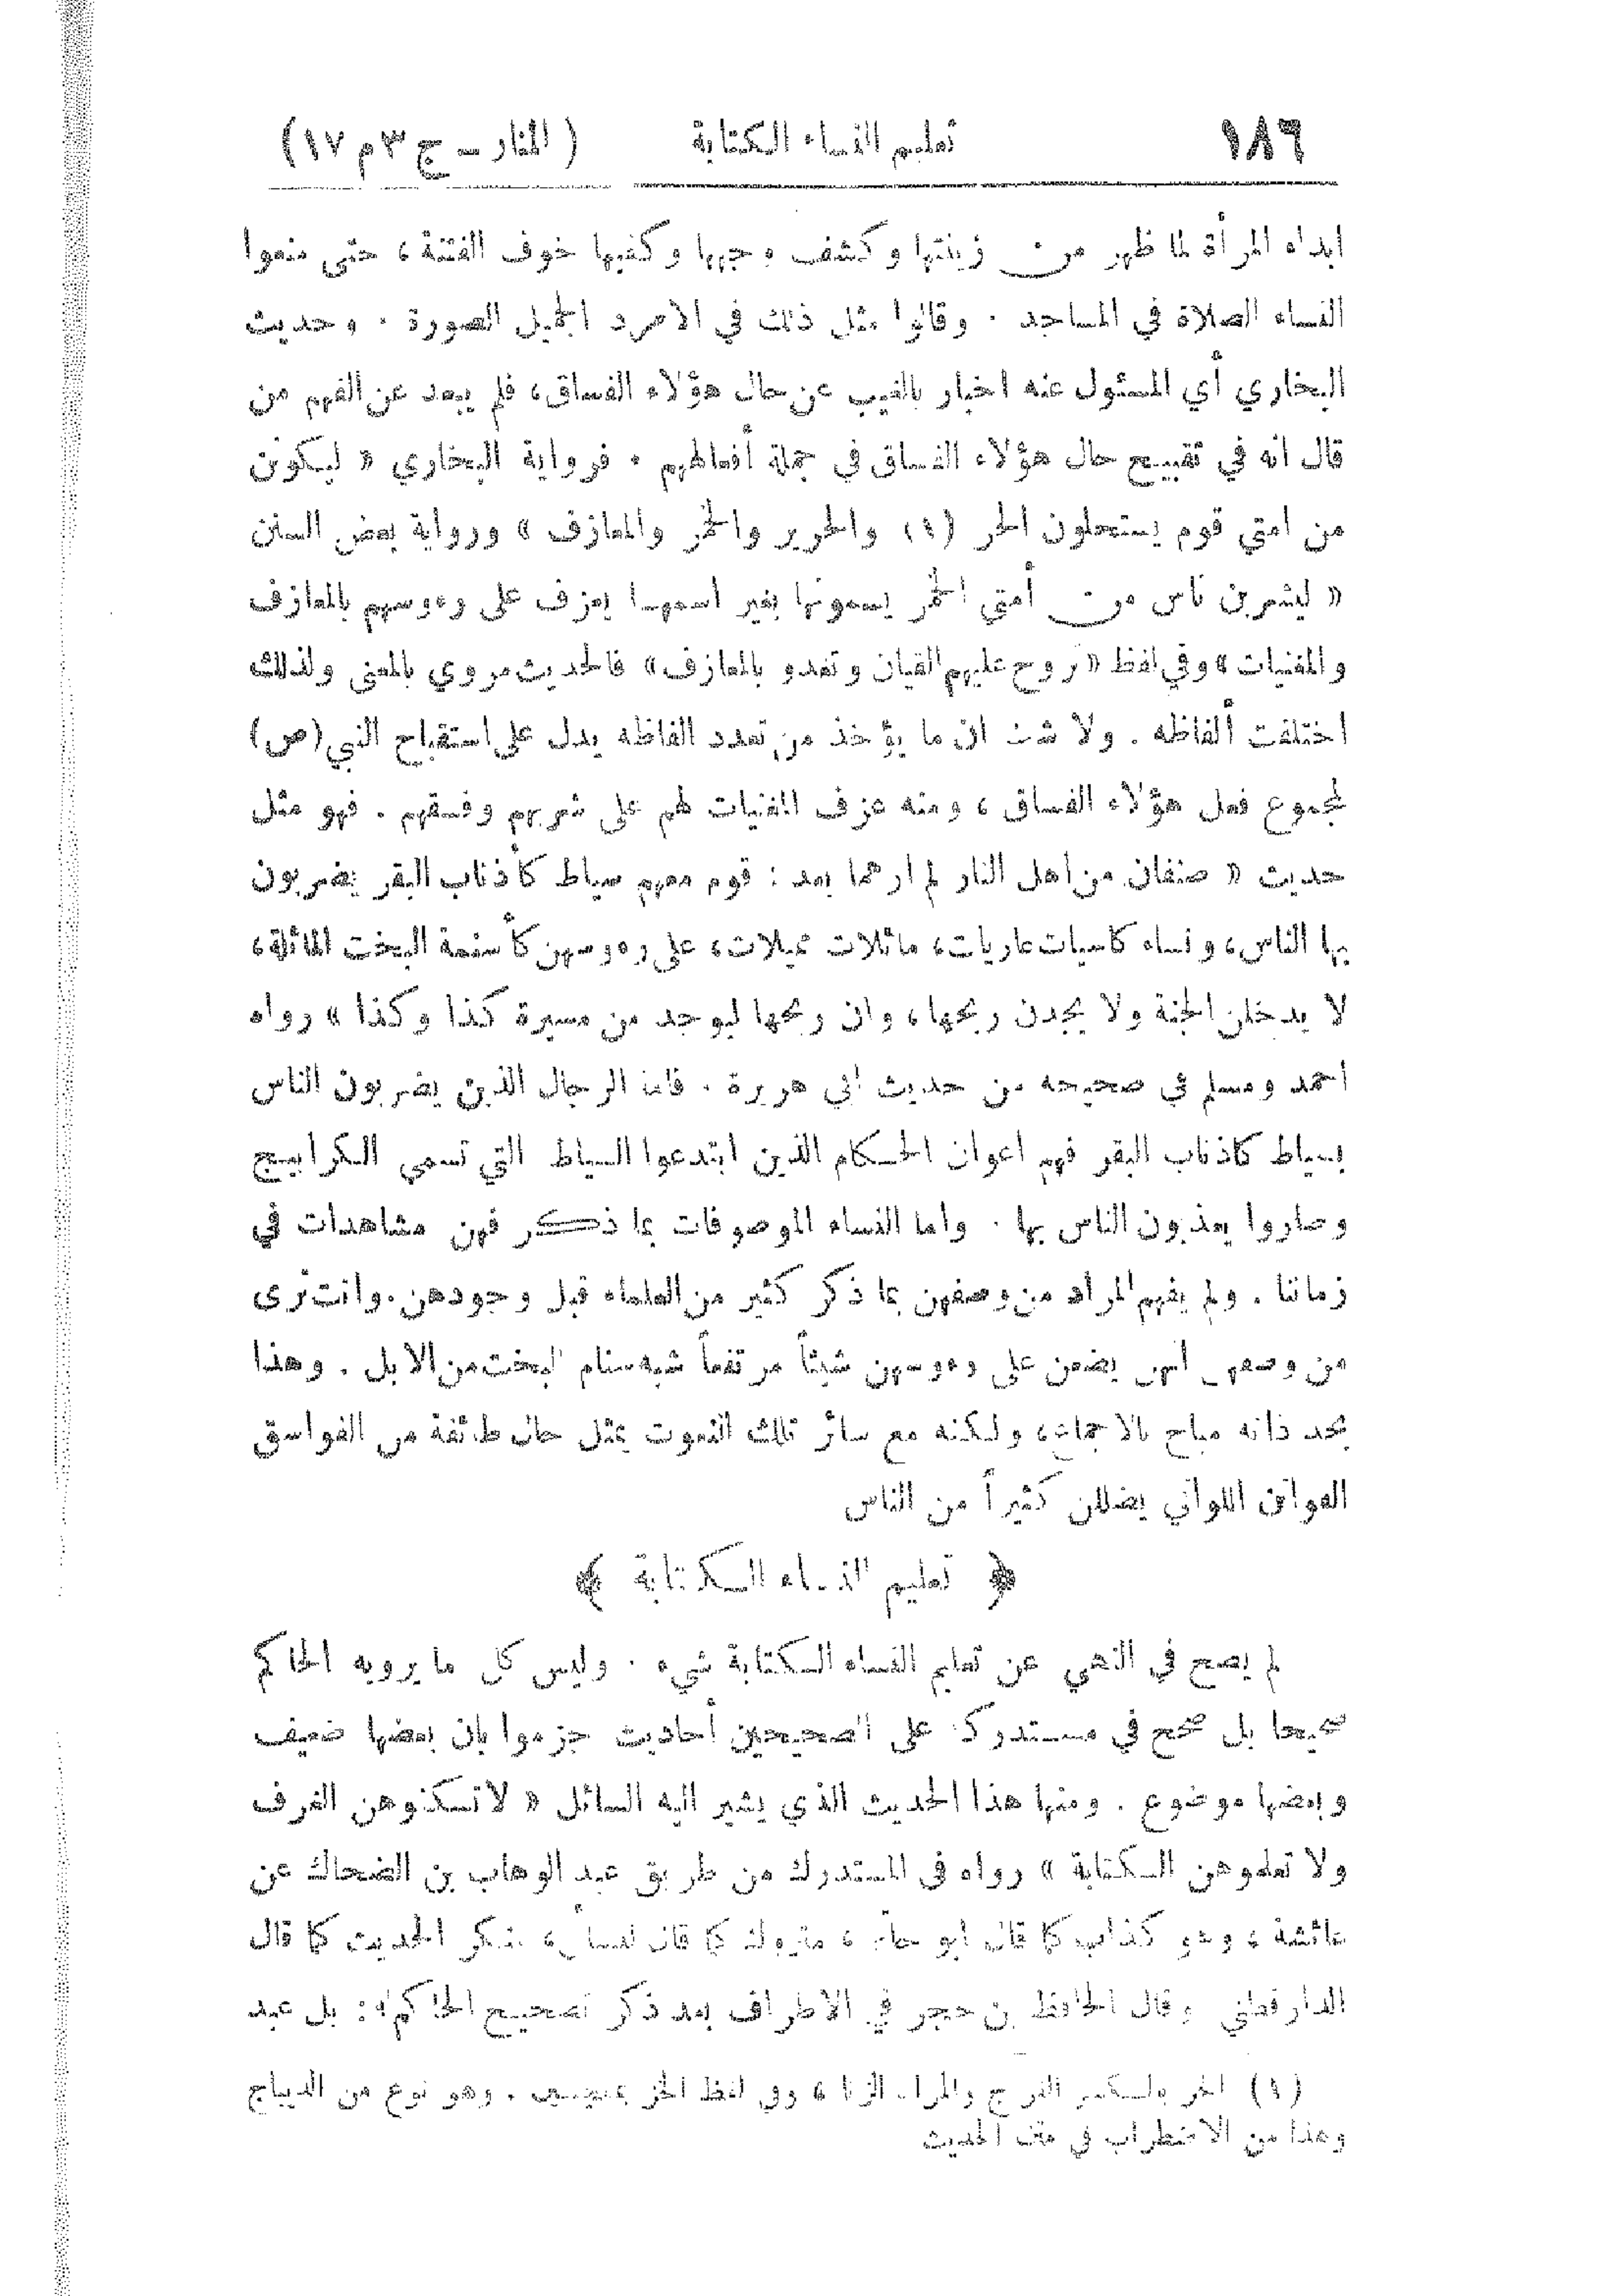 ١٨٦ تعليم النساء الكتابة (المنار ـ ج ٣ م ١٧)
ابداء المرأة لما ظهر من زينتها وكشف وجهها وكفيها خوف الفتنة ، حتى منعوا
النساء الصلاة في المساجد . وقالوا مثل ذلك في الامرد الجميل الصورة . وحديث
البخاري أي المسئول عنه اخبار بالغيب عن حال هؤلاء الفساق، فلم يبعد عن الفهم من
قال انه في تقبيح حال هؤلاء الفساق في جملة أفعالهم . فرواية البخاري « ليكونن
من امتي قوم يستحلون الحر (١) والحرير والخمر والمعازف » ورواية بعض السنن
« ليشربن ناس من أمتي الخمر يسمونها بغير اسمهـا يعزف على رءوسهم بالمعازف
والمغنيات » وفي لفظ « تروح عليهم القيان وتغدو بالمعازف» فالحديث مروي بالمعنى ولذلك
اختلفت ألفاظه . ولا شك ان ما يؤخذ من تعدد الفاظه يدل على استقباح النبي (ص)
لمجموع فعل هؤلاء الفساق ، ومنه عزف المغنيات لهم على شربهم وفسقهم . فهو مثل
حديث « صنفان من اهل النار لم ارهما بعد : قوم معهم سياط كأذناب البقر يضربون
بها الناس، ونساء كاسيات عاريات، مائلات مميلات، على رءوسهن كأسنمة البخت المائلة،
لا يدخلن الجنة ولا يجدن ريحها، وان ريحها ليوجد من مسيرة كذا وكذا » رواه
احمد ومسلم في صحيحه من حديث ابي هريرة . فاما الرجال الذين يضربون الناس
بسياط كاذناب البقر فهم اعوان الحكام الذين ابتدعوا السياط التي تسمى الكرابيج
وصاروا يعذبون الناس بها . واما النساء الموصوفات بما ذكر فهن مشاهدات في
زماننا . ولم يفهم المراد من وصفهن بما ذكر كثير من العلماء قبل وجودهن. وانت ترى
من وصفهن انهن يضعن على رءوسهن شيئاً مرتفعاً شبه سنام البخت من الابل . وهذا
بحد ذاته مباح بالاجماع، ولكنه مع سائر تلك النعوت يمثل حال طائفة من الفواسق
العواتي اللواتي يضللن كثيراً من الناس
﴿ تعليم النساء الكتابة ﴾
لم يصح في النهي عن تعليم النساء الكتابة شيء . وليس كل ما يرويه الحاكم
صحيحا بل صحح في مستدركه على الصحيحين أحاديث جزموا بان بعضها ضعيف
وبعضها موضوع . ومنها هذا الحديث الذي يشير اليه السائل « لا تسكنوهن الغرف
ولا تعلموهن الكتابة » رواه في المستدرك من طريق عبد الوهاب بن الضحاك عن
عائشة ، وهو كذاب كما قال ابو حاتم ، متروك كما قال النسائي، منكر الحديث كما قال
الدارقطني وقال الحافظ بن حجر في الاطراف بعد ذكر تصحيح الحاكم له : بل عبد
(١) الحر بالكسر الفرج والمراد الزنا ، وفي لفظ الخز بمعجمتين . وهو نوع من الديباج
وهذا من الاضطراب في متن الحديث